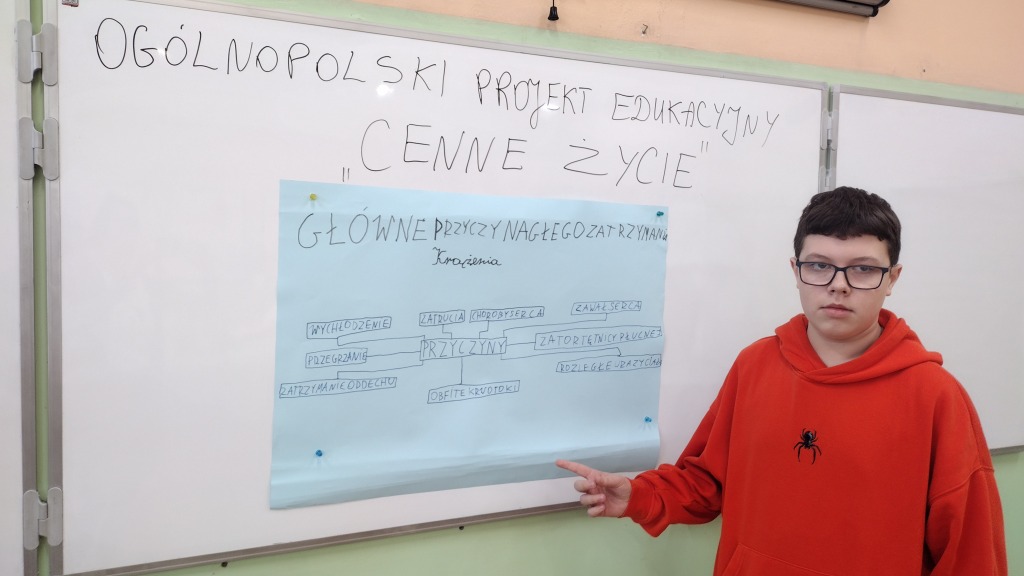 OGÓLNOPOLSKI PROJEKT EDUKACYJNY
„CENNE ŻYCIE"
GŁÓWNE PRZYCZYNY NAGŁEGO ZATRZYMANIA
Krążenia
WYCHŁODZENIE
ZATRUCIA
CHOROBY SERCA
ZAWAŁ SERCA
PRZEGRZANIE
PRZYCZYNY
ZATOR TĘTNICY PŁUCNEJ
ROZLEGŁE URAZY CIAŁA
ZATRZYMANIE ODDECHU
OBFITE KRWOTOKI